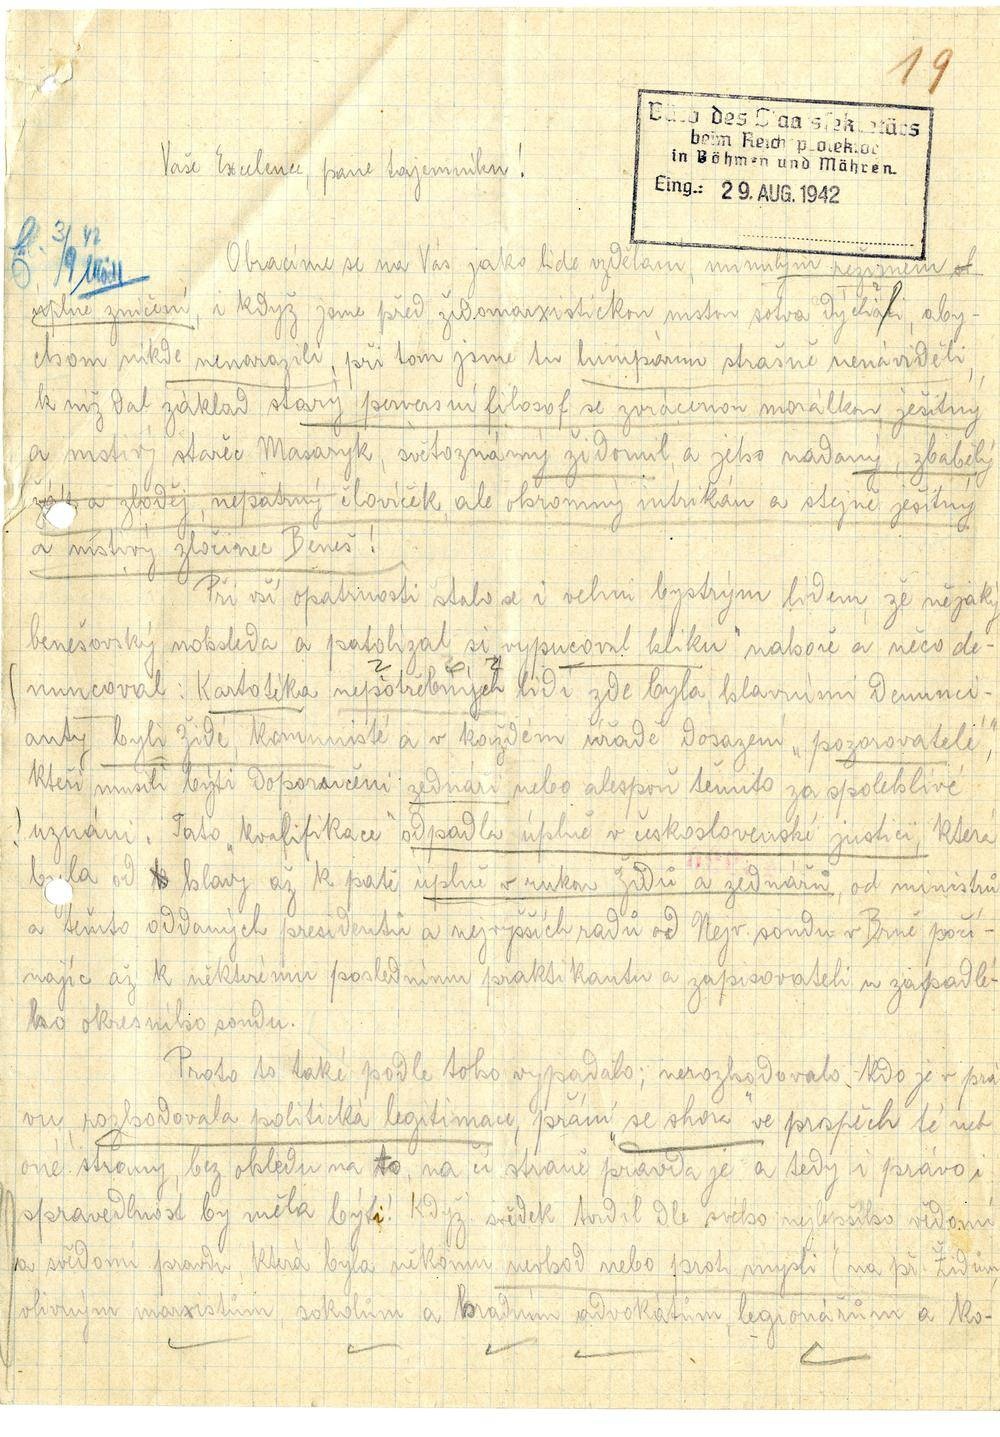 19
Büro des Staatssekretärs
beim Reichsprotektor
in Böhmen und Mähren.
Eing.: 29. AUG. 1942
Vaše Excelence, pane tajemníku!
3/9 42
Obracíme se na Vás jako lidé vzdělaní, minulým režimem
úplně zničení, i když jsme před židomarxistickou mstou sotva dýchali, aby-
chom nikde nenarazili, při tom jsme tu lumpárnu strašně nenáviděli,
k níž dal základ starý perversní filosof se zvrácenou morálkou, ješitný
a mstivý stařec Masaryk, světoznámý židomil, a jeho nadaný, zbabělý
a zloděj, nepatrný človíček, ale ohromný intrikán a stejně ješitný
a mstivý zločinec Beneš!
Při vší opatrnosti stalo se i velmi bystrým lidem, že nějaký
benešovský nohsleda a patolízal si „vypucoval kliku" nahoře a něco de-
nuncoval: Kartotéka nepotřebných lidí zde byla, hlavními denunci-
anty byli Židé, komunisté a v každém úřadě dosazení „pozorovatelé",
kteří musili býti doporučeni zednáři nebo alespoň těmito za spolehlivé
uznáni. Tato „kvalifikace" odpadla úplně v československé justici, která
byla od hlavy až k patě úplně v rukou Židů a zednářů, od ministrů
a těmto oddaných presidentů a nejvyšších radů od Nejv. soudu v Brně počí-
najíc až k některému poslednímu praktikantu a zapisovateli u zapadlé-
ho okresního soudu.
Proto to také podle toho vypadalo; nerozhodovalo, kdo je v prá
vu, rozhodovala politická legitimace, přání „se shora" ve prospěch té neb
oné strany, bez ohledu na to, na čí straně pravda je a tedy i právo i
spravedlnost by měla býti! Když svědek tvrdil dle svého nejlepšího vědomí
a svědomí pravdu, která byla někomu nevhod nebo proti mysli (na př. Židům,
vlivným marxistům, sokolům a hradním advokátům, legionářům a ko-